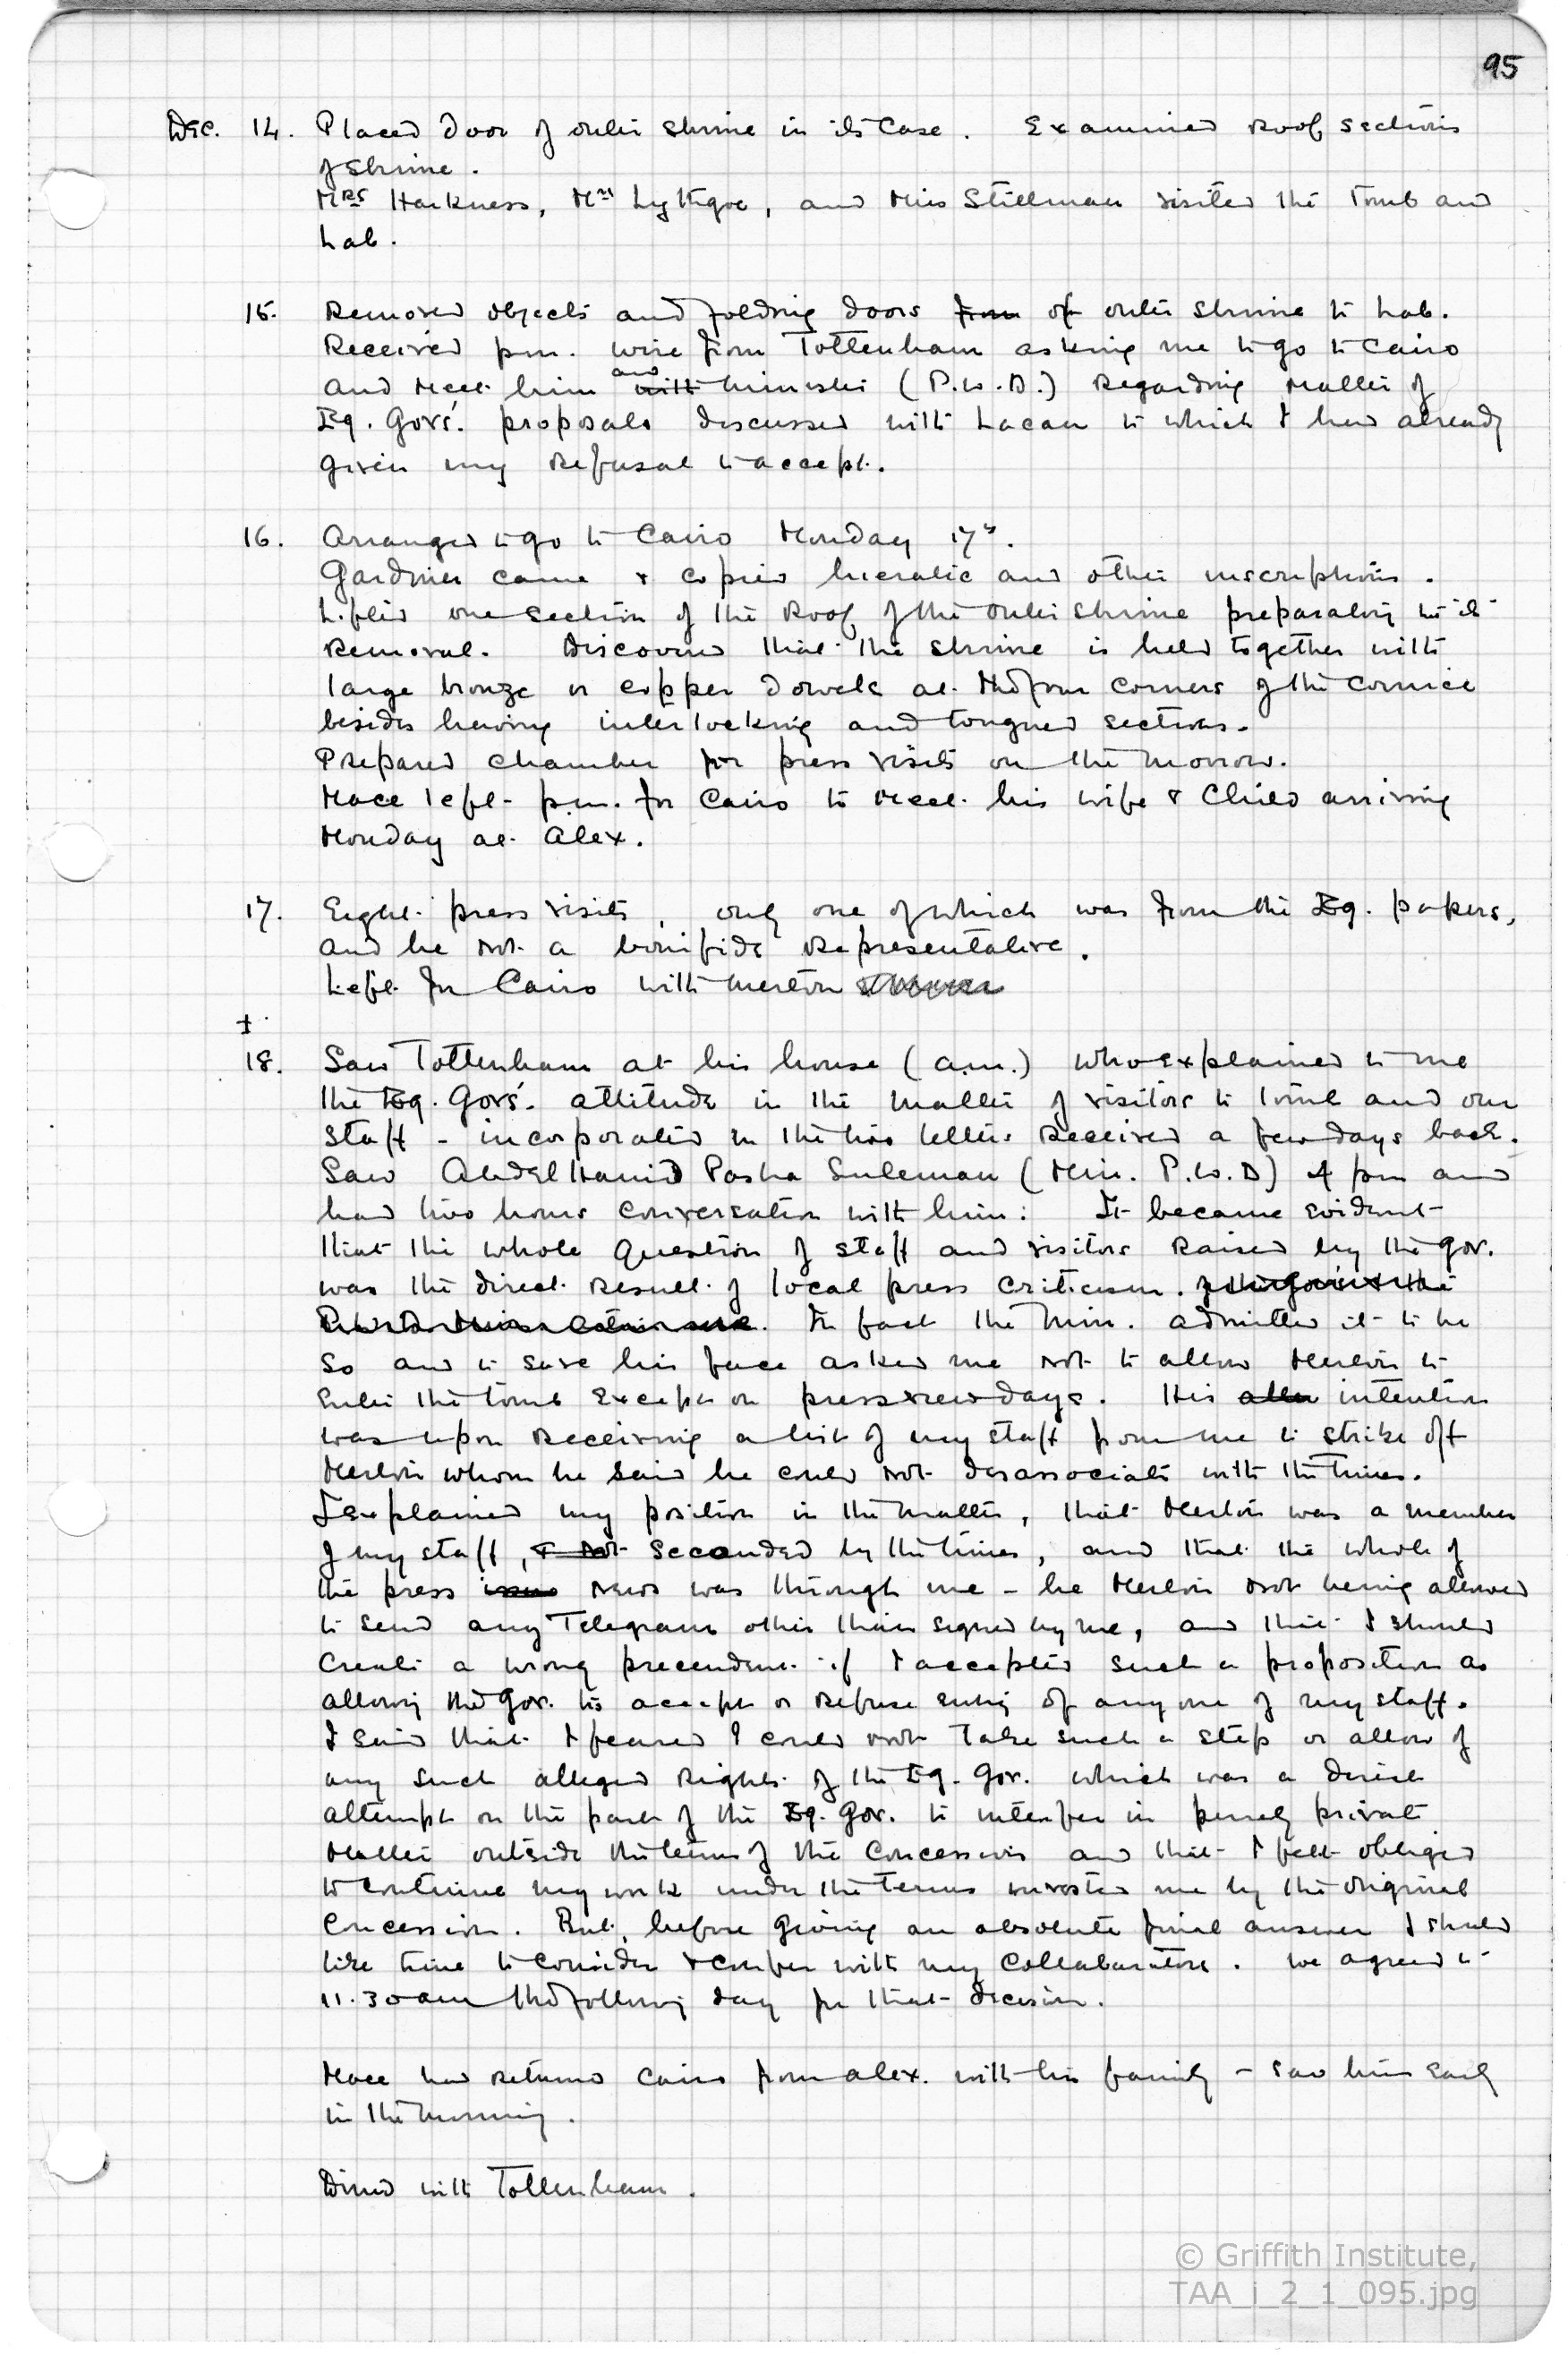 95
Dec. 14. Placed door of outer shrine in its case. Examined roof sections
of shrine.
Mrs Harkness, Mrs Lythgoe, and Miss Stillman visited the tomb and
Lab.
15. Removed objects and folding doors from of outer shrine to Lab.
Received p.m. wire from Tottenham asking me to go to Cairo
and meet him with and Minister (P.W.D.) regarding matter of
Eg. Govs'. proposals discussed with Lacau to which I had already
given my refusal to accept.
16. Arranged to go to Cairo Monday 17th.
Gardiner came & copied hieratic and other inscriptions.
Lifted one section of the roof of the outer shrine preparatory to its
removal. Discovered that the shrine is held together with
large bronze or copper dowels at the four corners of the cornice
besides having interlocking and tongued sections.
Prepared chamber for press visits on the morrow.
Mace left p.m. for Cairo to meet his wife & child arriving
Monday at Alex.
17. Eight press visits, only one of which was from the Eg. papers,
and he not a bonifide representative.
Left for Cairo with Merton
‡
18. Saw Tottenham at his house (a.m.) who explained to me
the Eg. Govs'. attitude in the matter of visitors to tomb and our
staff - incorporated in the two letters received a few days back.
Saw Abdel Hamid Pasha Suleman (Min. P.W.D) 4 pm and
had two hours conversation with him: It became evident
that the whole question of staff and visitors raised by the Gov.
was the direct result of local press criticism.
In fact the Min. admitted it to be
so and to save his face asked me not to allow Merton to
enter the tomb except on press view days. His intention
was upon receiving a list of my staff from me to strike off
Merton whom he said he could not desassociate with the Times.
I explained my position in the matter, that Merton was a member
of my staff, & not seconded by the Times, and that the whole of
the press issue news was through me - he Merton not being allowed
to send any Telegram other than signed by me, and that I should
create a wrong precendent if I accepted such a proposition as
allowing the Gov. to accept or refuse entry of any one of my staff.
I said that I feared I could not take such a step or allow of
any such alleged rights of the Eg. Gov. which was a direct
attempt on the part of the Eg. Gov. to interfer in purely private
matter outside the terms of the concession and that I felt obliged
to continue my work under the terms invested me by the original
concession. But, before giving an absolute final answer I should
like time to consider & confer with my collaborators. We agreed to
11.30 am the following day for that decision.
Mace had returned Cairo from Alex. with his family - saw him early
in the morning.
Dined with Tottenham.
© Griffith Institute,
TAA_i_2_1_095.jpg